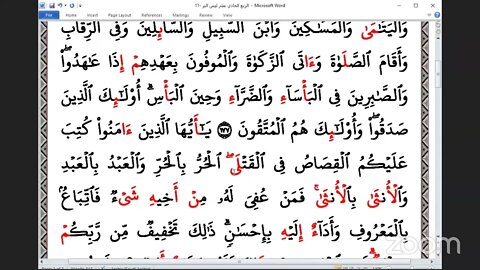 الربع الحادي عشر ليس البر -11 - Microsoft Word
File Home Insert Page Layout References Mailings Review View
وَٱلۡيَتَٰمَىٰ وَٱلۡمَسَٰكِينَ وَٱبۡنَ ٱلسَّبِيلِ وَٱلسَّآئِلِينَ وَفِي ٱلرِّقَابِ
وَأَقَامَ ٱلصَّلَوٰةَ وَءَاتَى ٱلزَّكَوٰةَ وَٱلۡمُوفُونَ بِعَهۡدِهِمۡ إِذَا عَٰهَدُواْۖ
وَٱلصَّٰبِرِينَ فِي ٱلۡبَأۡسَآءِ وَٱلضَّرَّآءِ وَحِينَ ٱلۡبَأۡسِۗ أُوْلَٰٓئِكَ ٱلَّذِينَ
صَدَقُواْۖ وَأُوْلَٰٓئِكَ هُمُ ٱلۡمُتَّقُونَ ١٧٧ يَٰٓأَيُّهَا ٱلَّذِينَ ءَامَنُواْ كُتِبَ
عَلَيۡكُمُ ٱلۡقِصَاصُ فِي ٱلۡقَتۡلَىۖ ٱلۡحُرُّ بِٱلۡحُرِّ وَٱلۡعَبۡدُ بِٱلۡعَبۡدِ
وَٱلۡأُنثَىٰ بِٱلۡأُنثَىٰۚ فَمَنۡ عُفِيَ لَهُۥ مِنۡ أَخِيهِ شَيۡءٞ فَٱتِّبَاعُۢ
بِٱلۡمَعۡرُوفِ وَأَدَآءٌ إِلَيۡهِ بِإِحۡسَٰنٖۗ ذَٰلِكَ تَخۡفِيفٞ مِّن رَّبِّكُمۡ
zoom